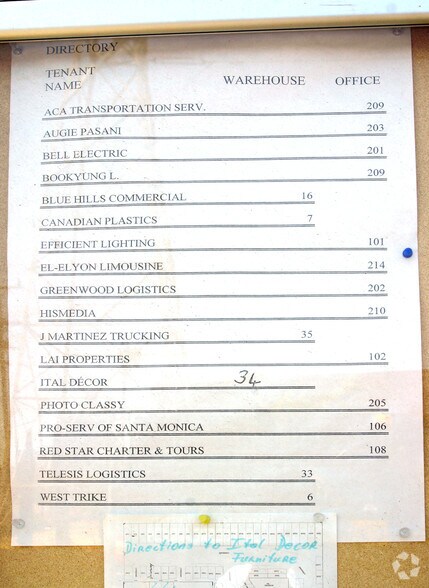 DIRECTORY
TENANT NAME WAREHOUSE OFFICE
ACA TRANSPORTATION SERV. 209
AUGIE PASANI 203
BELL ELECTRIC 201
BOOKYUNG L. 209
BLUE HILLS COMMERCIAL 16
CANADIAN PLASTICS 7
EFFICIENT LIGHTING 101
EL-ELYON LIMOUSINE 214
GREENWOOD LOGISTICS 202
HISMEDIA 210
J MARTINEZ TRUCKING 35
LAI PROPERTIES 102
ITAL DÉCOR 34
PHOTO CLASSY 205
PRO-SERV OF SANTA MONICA 106
RED STAR CHARTER & TOURS 108
TELESIS LOGISTICS 33
WEST TRIKE 6
Directions to Ital Decor
Furniture